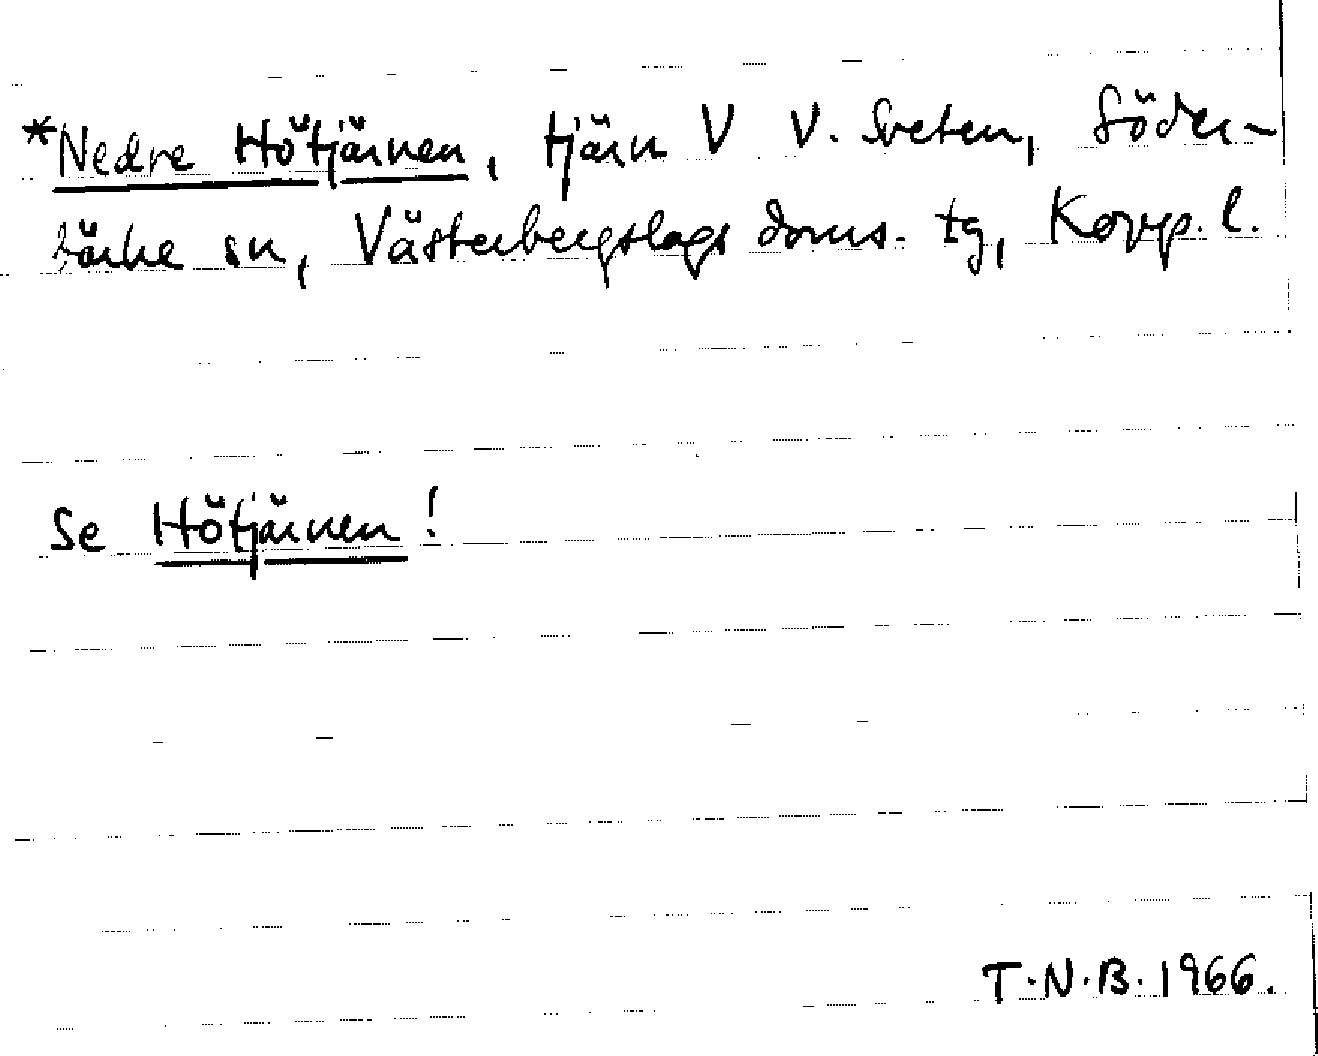 *Nedre Hötjärnen, tjärn V V. Sveten, Söder-
bärke sn, Västerbergslags doms. tg, Kopp. l.
Se Hötjärnen!
T.N.B. 1966.